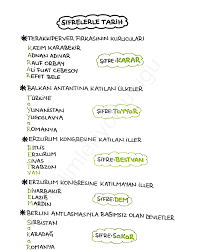 ŞİFRELERLE TARİH
*TERAKKİPERVER FIRKASININ KURUCULARI
KAZIM KARABEKİR
ADNAN ADIVAR
RAUF ORBAY
ALİ FUAT CEBESOY
REFET BELE
ŞİFRE: KARAR
*BALKAN ANTANTINA KATILAN ÜLKELER
TÜRKİYE
YUNANİSTAN
YUGOSLAVYA
ROMANYA
ŞİFRE:
*ERZURUM KONGRESİNE KATILAN İLLER
BİTLİS
ERZURUM
SİVAS
TRABZON
VAN
ŞİFRE: BESTVAN
*ERZURUM KONGRESİNE KATILMAYAN İLLER
DİYARBAKIR
ELAZIĞ
MARDİN
ŞİFRE: DEM
*BERLİN ANTLAŞMASIYLA BAĞIMSIZ OLAN DEVLETLER
SIRBİSTAN
KARADAĞ
ROMANYA
ŞİFRE: